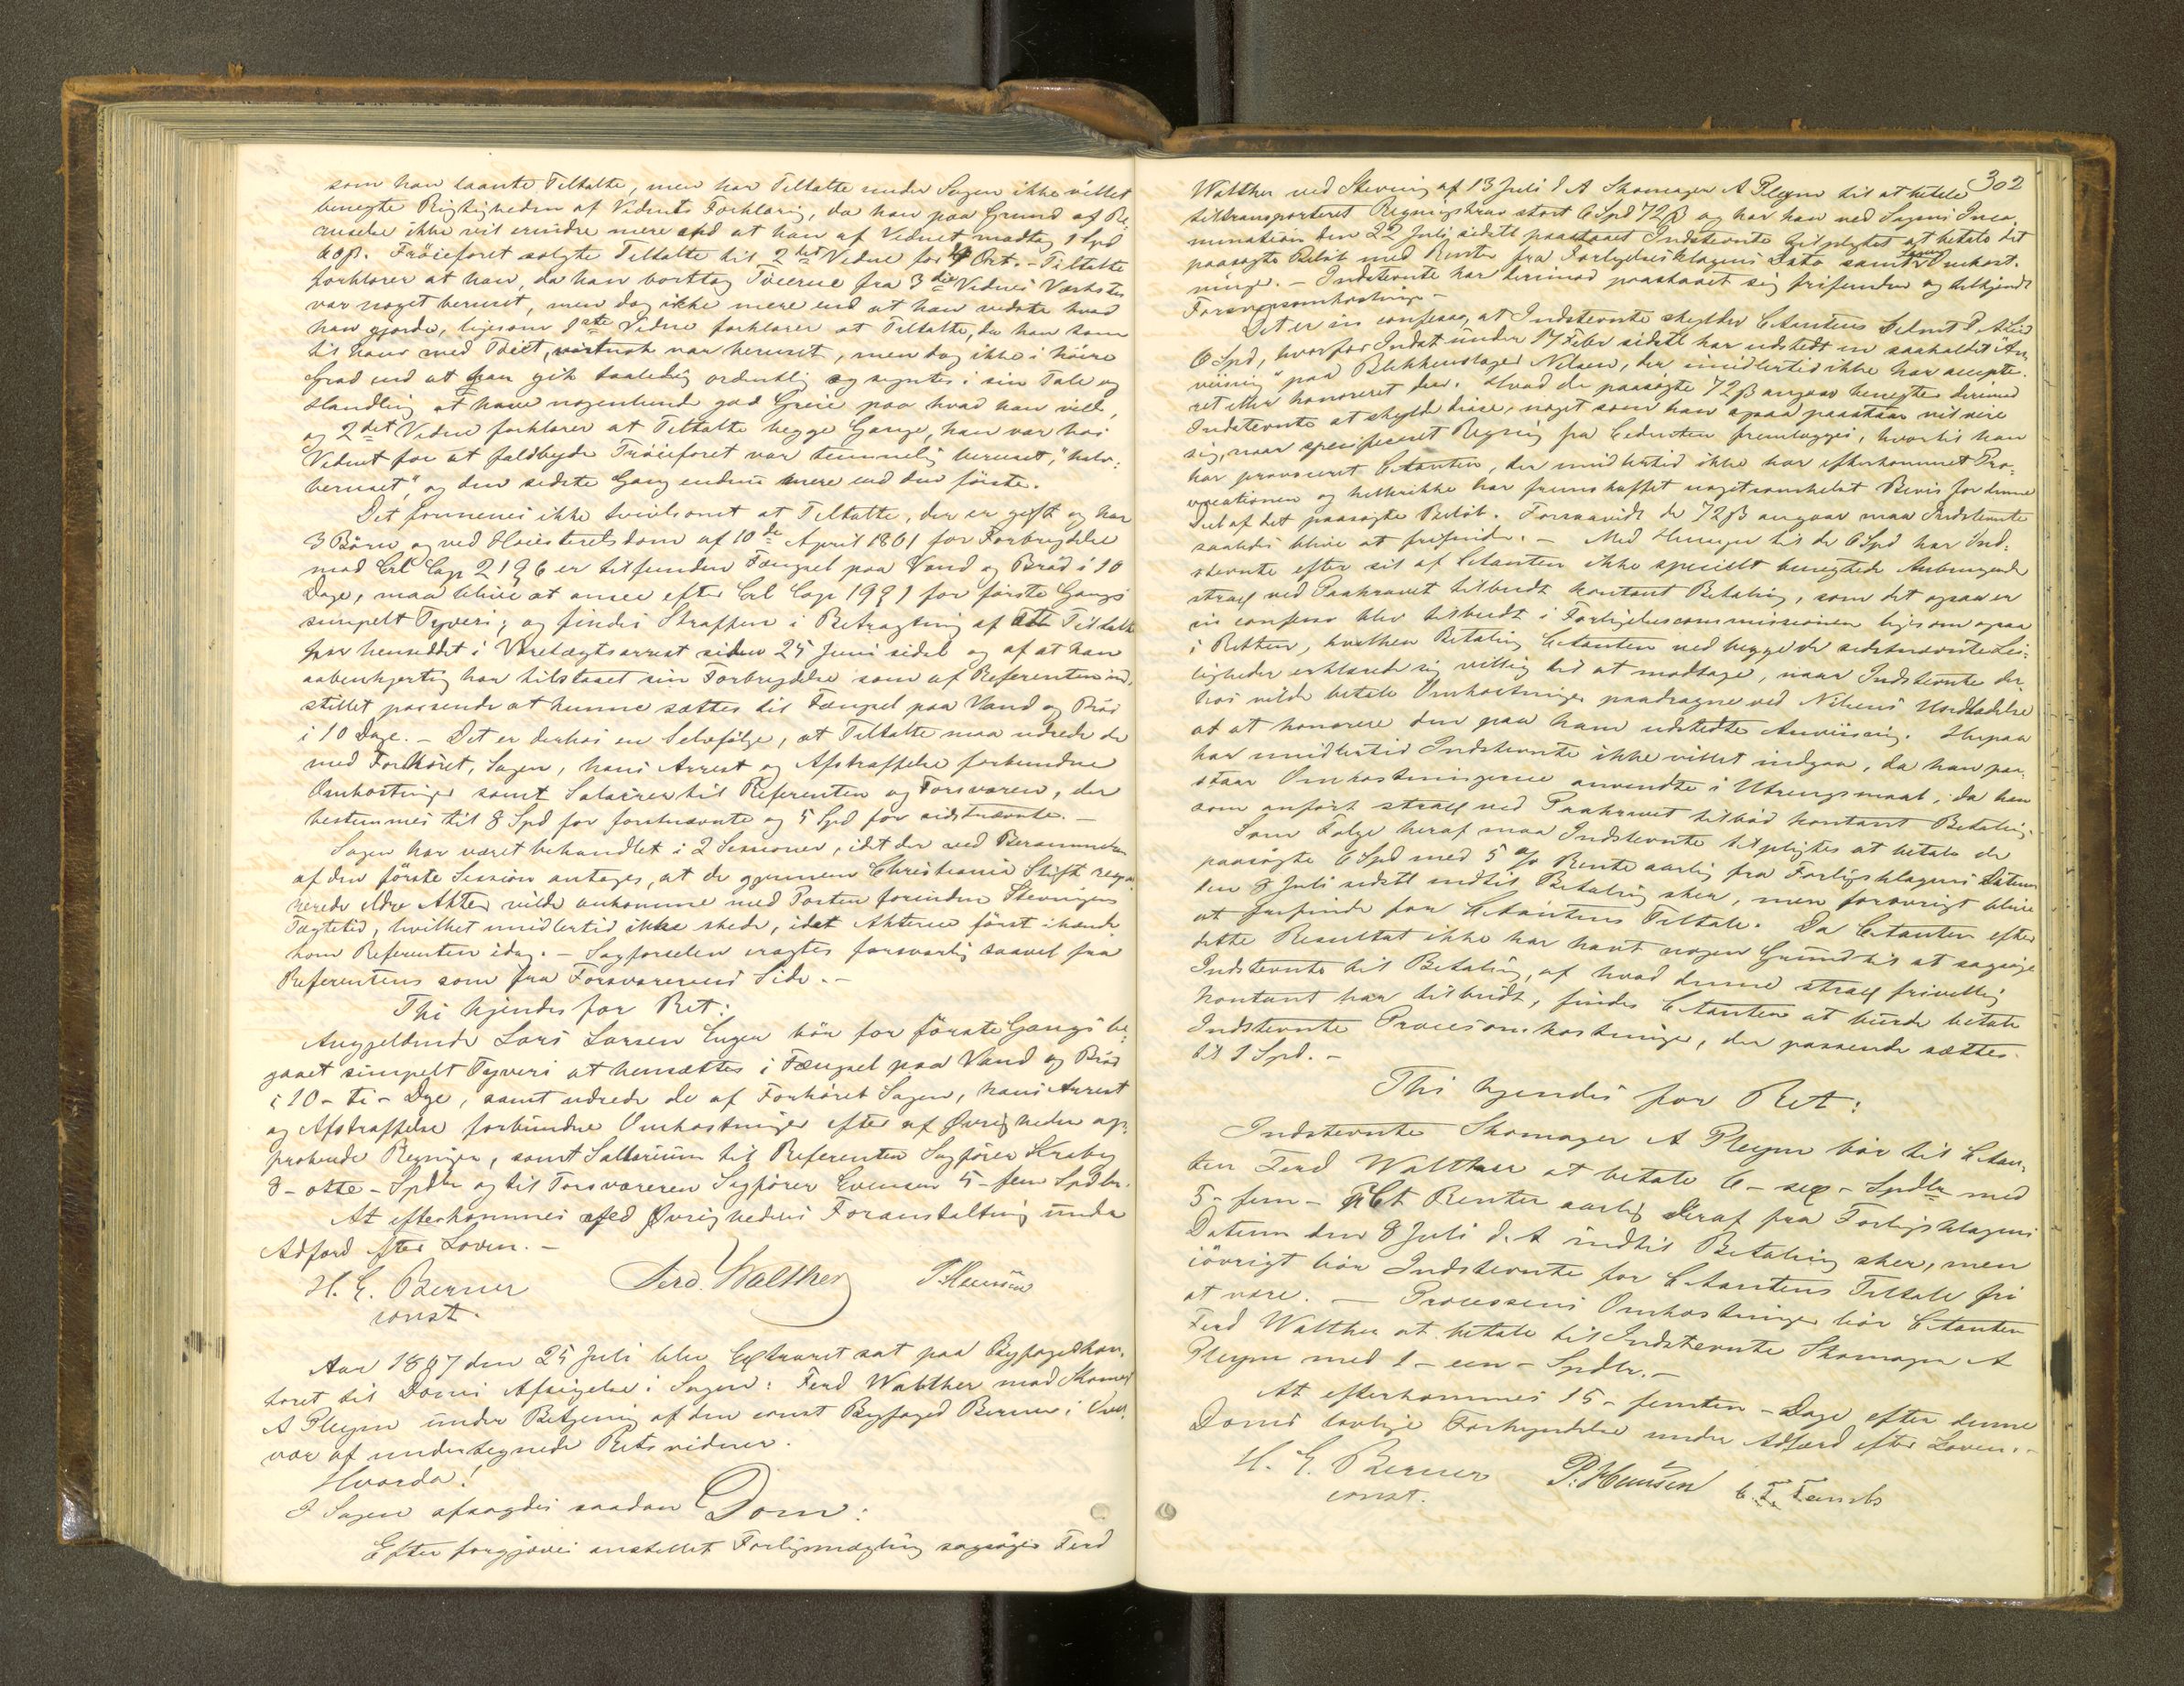 som han laante Tiltalte, men har Tiltalte under Sagen ikke villet
benegte Rigtigheden af Vidnets Forklaring, da han paa Grund af Be-
ruselse ikke vil erindre mere end at han af Vidnet modtog 1 Spd
60 β. Trøieforet solgte Tiltalte til 2det Vidne for 4 Ort. - Tiltalte
forklarer at han, da han borttog Tøierne fra 3die Vidnes Værksted
var noget beruset, men dog ikke mere end at han vidste hvad
han gjorde, ligesom 1ste Vidne forklarer at Tiltalte, da han kom
til hans med Tøiet, vistnok var beruset, men dog ikke i høiere
Grad end at han gik taalelig ordentlig og syntes i sin Tale og
Handling at have nogenlunde god Greie paa hvad han vilde,
og 2det Vidne forklarer at Tiltalte begge Gange, han var hos
Vidnet for at falbyde Trøieforet var temmelig beruset, "halv-
beruset", og den sidste Gang endnu mere end den første.
Det formenes ikke tvivlsomt at Tiltalte, der er gift og har
3 Børn og ved Høiesteretsdom af 10de April 1861 for Forbrydelse
mod Crl Cap 21 § 6 er tilfunden Fængsel paa Vand og Brød i 10
Dage, maa blive at ansee efter Crl Cap 19 § 1 for første Gangs
simpelt Tyveri; og findes Straffen i Betragtning af at Tiltalte
har henseddet i Varetægtsarrest siden 25 Juni sidst og af at han
aabenhjertig har tilstaaet sin Forbrydelse som af Referenten ind-
stillet passende at kunne sættes til Fængsel paa Vand og Brød
i 10 Dage. - Det er derhos en Selvfølge, at Tiltalte maa udrede de
med Forhøret, Sagen, hans Arrest og Afstraffelse forbundne
Omkostninger samt Salairer til Referenten og Forsvaren, der
bestemmes til 8 Spd for førstnævnte og 5 Spd for sidstnævnte. -
Sagen har været behandlet i 2 Sessioner, idet der ved Berammelsen
af den første Session antages, at de gjennem Christiania Stift requi-
rerede ældre Akter vilde ankomme med Posten forinden Stevningens
Tægtetid, hvilket imidlertid ikke skede, idet Akterne først ihænde-
kom Referenten idag. - Sagførselen eragtes forsvarlig saavel fra
Referentens som fra Forsvarerens Side. -
Thi kjendes for Ret:
Angjeldende Lars Larsen Engen bør for første Gangs be-
gaaet simpelt Tyveri at hensættes i Fængsel paa Vand og Brød
i 10 - ti - Dage, samt udrede de af Forhøret Sagen, hans Arrest
og Afstraffelse forbundne Omkostninger efter af Øvrigheden ap-
proberede Regninger, samt Sallarium til Referenten Sagfører Kraby
8 - otte - Spdlr og til Forsvareren Sagfører Evensen 5 - fem Spdlr.
At efterkommes ved Øvrighedens Foranstaltning under
Adfærd efter Loven. -
H. E. Berner Ferd. Walther P. Hansen
const.
Aar 1867 den 25 Juli blev Extraret sat paa Byfogedkon-
toret til Doms Afsigelse i Sagen: Ferd Walther mod Skomager
A Pleym under Betjening af den const Byfoged Berner i Over-
vær af undertegnede Retsvidner.
Hvorda!
I Sagen afsagdes saadan Dom:
Efter forgjæves anstillet Forligsmægling sagsøges Ferd
302
Walther ved Stevning af 13 Juli d A Skomager A Pleym til at betale
tiltransporteret Regningskrav stort 6 Spd 72 β og har han ved Sagens Inca-
mination den 22 Juli sidstl paastaaet Indstevnte tilpligtet at betale det
paasøgte Beløb med Renter fra Forligelsesklagens Dato samt Omkost-
ninger. - Indstevnte har derimod paastaaet sig frifunden og tilkjendt
Forsvarsomkostninger -
Det er in confesso, at Indstevnte skylder Citantens Cedent
6 Spd, hvorfor Indst under 17 Febr sidstl har udstedt en saakaldet "An-
viisning" paa Blikkenslager Nilsen, der imidlertid ikke har accepte-
ret eller honoreret den. Hvad de paasøgte 72 β angaar benegter derimod
Indstevnte at skylde disse, noget som han ogsaa paastaar vil vise
sig, naar specificeret Regning fra Cedenten fremlægges, hvortil han
har provoceret Citanten, der imidlertid ikke har efterkommet Pro-
vocationen og hellerikke har fremskaffet nogetsomhelst Bevis for denne
Del af det paasøgte Beløb. Forsaavidt de 72 β angaar maa Indstevnte
saaledes blive at frifinde. - Med Hensyn til de 6 Spd har Ind-
stevnte efter sit af Citanten ikke specielt benegtede Anbringende
strax ved Paakravet tilbudt kontant Betaling, som det ogsaa er
in confesso blev tilbudt i Forligelsescommissionen ligesom ogsaa
i Retten, hvilken Betaling Citanten ved begge de sidstnævnte Lei-
ligheder erklærede sig villig til at modtage, naar Indstevnte der-
hos vilde betale Omkostninger paadragne ved Nilsens Undladelse
af at honorere den paa ham udstedte Anviisning. Herpaa
har imidlertid Indstevnte ikke villet indgaa, da han paa-
staar Omkostningerne anvendte i Utrengsmaal, da han
som anført strax ved Paakravet tilbød kontant Betaling.
Som Følge heraf maa Indstevnte tilpligtes at betale de
paasøgte 6 Spd med 5 % Rente aarlig fra Forligsklagens Datum
den 8 Juli sidstl indtil Betaling sker, men forøvrigt blive
at frifinde for Citantens Tiltale. Da Citanten efter
dette Resultat ikke har havt nogen Grund til at sagsøge
Indstevnte til Betaling, af hvad denne strax frivillig
kontant har tilbudt, findes Citanten at burde betale
Indstevnte Procesomkostninger, der passende sættes
til 1 Spd. -
Thi kjendes for Ret:
Indstevnte Skomager A Pleym bør til Citan-
ten Ferd Walther at betale 6 - sex - Spdlr med
5 - fem - pCt Renter aarlig deraf fra Forligsklagens
Datum den 8 Juli d. A indtil Betaling sker, men
iøvrigt bør Indstevnte for Citantens Tiltale fri
at være. - Processens Omkostninger bør Citanten
Ferd Walther at betale til Indstevnte Skomager A
Pleym med 1 - een - Spdlr. -
At efterkommes 15 - femten - Dage efter denne
Doms lovlige Forkyndelse under Adfærd efter Loven. -
H. E. Berner P. Hansen
const.